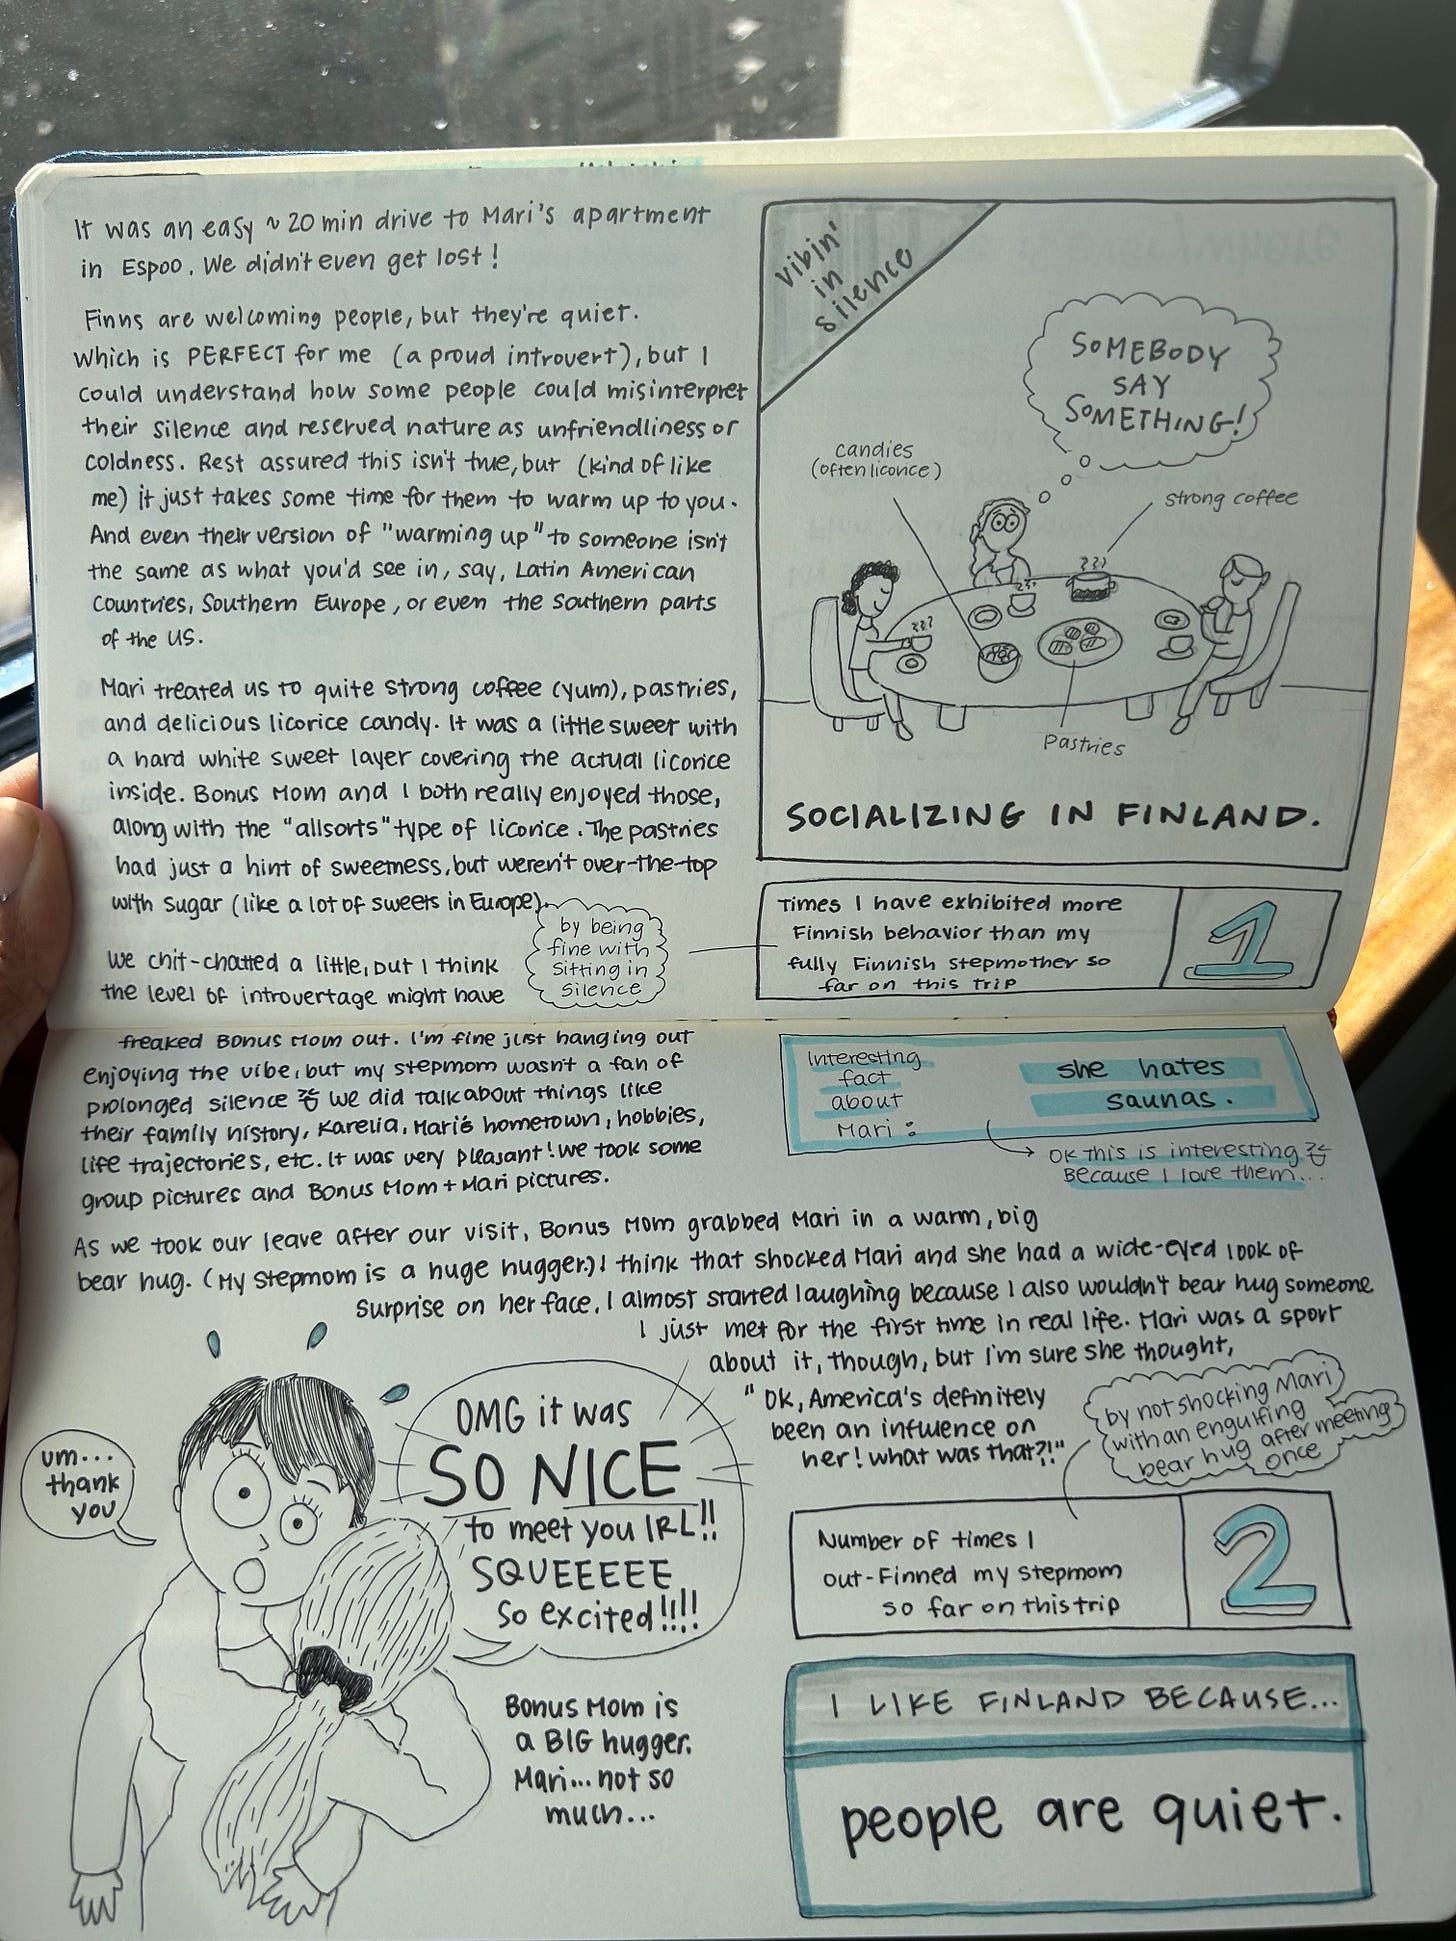 It was an easy ~20 min drive to Mari's apartment
in Espoo. We didn't even get lost!
Finns are welcoming people, but they're quiet.
Which is PERFECT for me (a proud introvert), but I
could understand how some people could misinterpret
their silence and reserved nature as unfriendliness or
coldness. Rest assured this isn't true, but (kind of like
me) it just takes some time for them to warm up to you.
And even their version of "warming up" to someone isn't
the same as what you'd see in, say, Latin American
countries, Southern Europe, or even the Southern parts
of the US.
Mari treated us to quite strong coffee (yum), pastries,
and delicious licorice candy. It was a little sweet with
a hard white sweet layer covering the actual licorice
inside. Bonus Mom and I both really enjoyed those,
along with the "allsorts" type of licorice. The pastries
had just a hint of sweetness, but weren't over-the-top
with sugar (like a lot of sweets in Europe).
We chit-chatted a little, but I think
the level of introvertage might have
vibin'
in
silence
SOMEBODY
SAY
SOMETHING!
candies
(often licorice)
strong coffee
Pastries
SOCIALIZING IN FINLAND.
by being
fine with
sitting in
silence
Times I have exhibited more
Finnish behavior than my
fully Finnish stepmother so
far on this trip
1
freaked Bonus Mom out. I'm fine just hanging out
enjoying the vibe, but my stepmom wasn't a fan of
prolonged silence We did talk about things like
their family history, Karelia, Mari's hometown, hobbies,
life trajectories, etc. It was very pleasant! We took some
group pictures and Bonus Mom + Mari pictures.
Interesting
fact
about
Mari:
she hates
saunas.
OK this is interesting
Because I love them...
As we took our leave after our visit, Bonus Mom grabbed Mari in a warm, big
bear hug. (My stepmom is a huge hugger.) I think that shocked Mari and she had a wide-eyed look of
surprise on her face. I almost started laughing because I also wouldn't bear hug someone
I just met for the first time in real life. Mari was a sport
about it, though, but I'm sure she thought,
"Ok, America's definitely
been an influence on
her! What was that?!"
by not shocking Mari
with an engulfing
bear hug after meeting
once
um...
thank
you
OMG it was
SO NICE
to meet you IRL!!
SQUEEEEE
so excited!!!!
Number of times I
out-Finned my stepmom
so far on this trip
2
Bonus Mom is
a BIG hugger.
Mari... not so
much...
I LIKE FINLAND BECAUSE...
people are quiet.